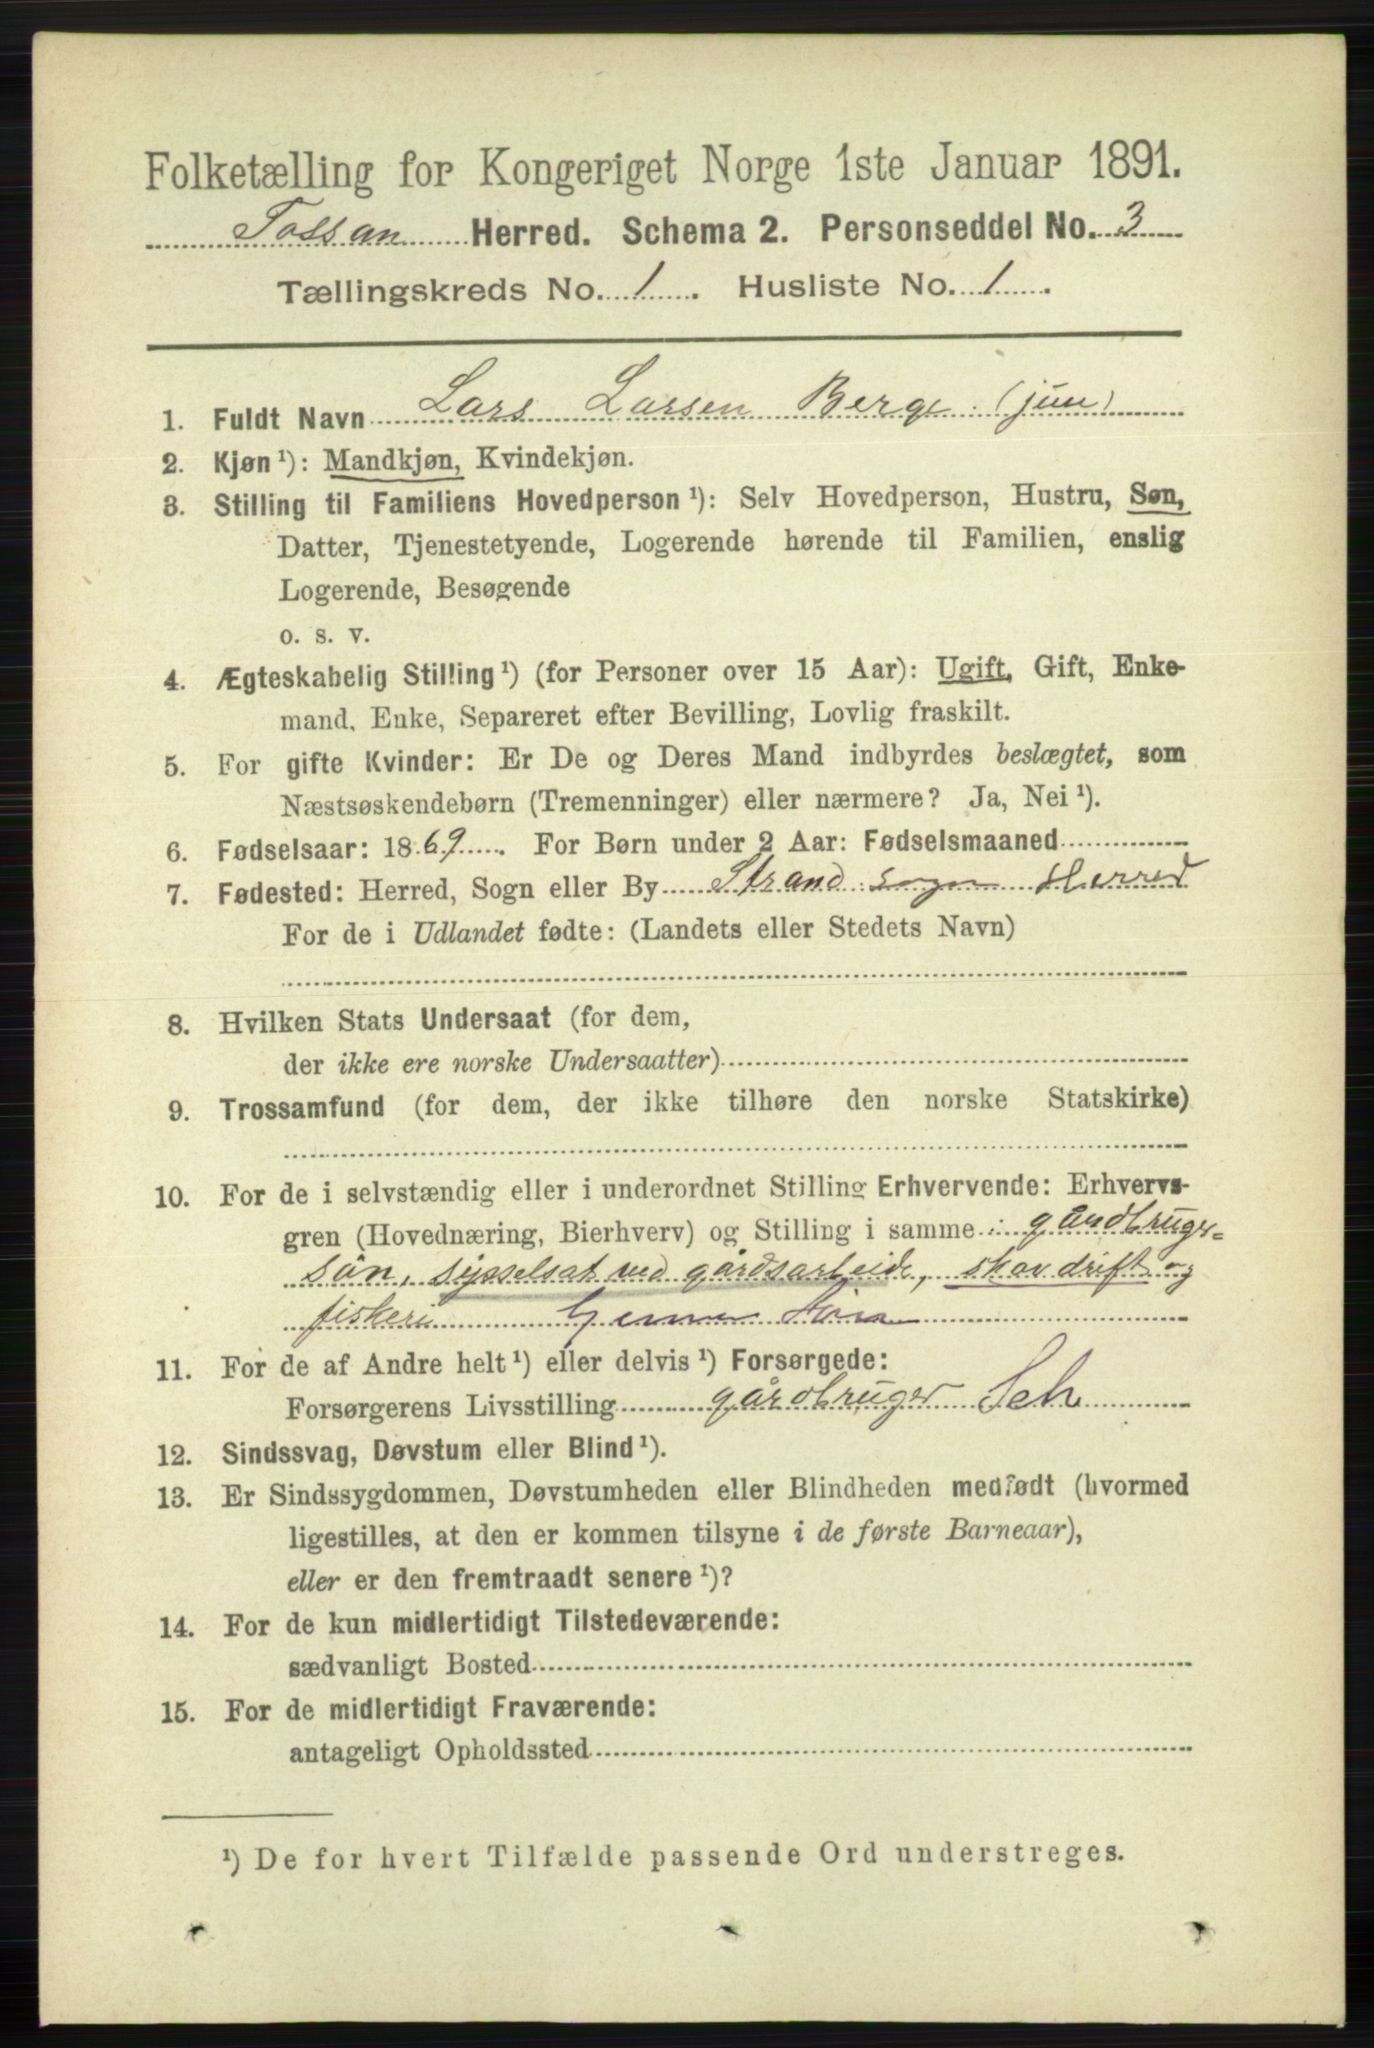 Folketælling for Kongeriget Norge 1ste Januar 1891.
Fossan Herred. Schema 2. Personseddel No. 3
Tællingskreds No. 1. Husliste No. 1.
1. Fuldt Navn Lars Larsen Berge (jun)
2. Kjøn ¹): Mandkjøn, Kvindekjøn.
3. Stilling til Familiens Hovedperson ¹): Selv Hovedperson, Hustru, Søn,
Datter, Tjenestetyende, Logerende hørende til Familien, enslig
Logerende, Besøgende
o. s. v.
4. Ægteskabelig Stilling ¹) (for Personer over 15 Aar): Ugift, Gift, Enke-
mand, Enke, Separeret efter Bevilling, Lovlig fraskilt.
5. For gifte Kvinder: Er De og Deres Mand indbyrdes beslægtet, som
Næstsøskendebørn (Tremenninger) eller nærmere? Ja, Nei ¹).
6. Fødselsaar: 1869. For Børn under 2 Aar: Fødselsmaaned
7. Fødested: Herred, Sogn eller By Strand sogn Herred
For de i Udlandet fødte: (Landets eller Stedets Navn)
8. Hvilken Stats Undersaat (for dem,
der ikke ere norske Undersaatter)
9. Trossamfund (for dem, der ikke tilhøre den norske Statskirke)
10. For de i selvstændig eller i underordnet Stilling Erhvervende: Erhvervs-
gren (Hovednæring, Bierhverv) og Stilling i samme: gårdbruger-
sön, sysselsat ved gårdsarbeide, skovdrift og
fiskeri
11. For de af Andre helt ¹) eller delvis ¹) Forsørgede:
Forsørgerens Livsstilling gårdbruger Selv
12. Sindssvag, Døvstum eller Blind ¹).
13. Er Sindssygdommen, Døvstumheden eller Blindheden medfødt (hvormed
ligestilles, at den er kommen tilsyne i de første Barneaar),
eller er den fremtraadt senere ¹)?
14. For de kun midlertidigt Tilstedeværende:
sædvanligt Bosted
15. For de midlertidigt Fraværende:
antageligt Opholdssted
¹) De for hvert Tilfælde passende Ord understreges.